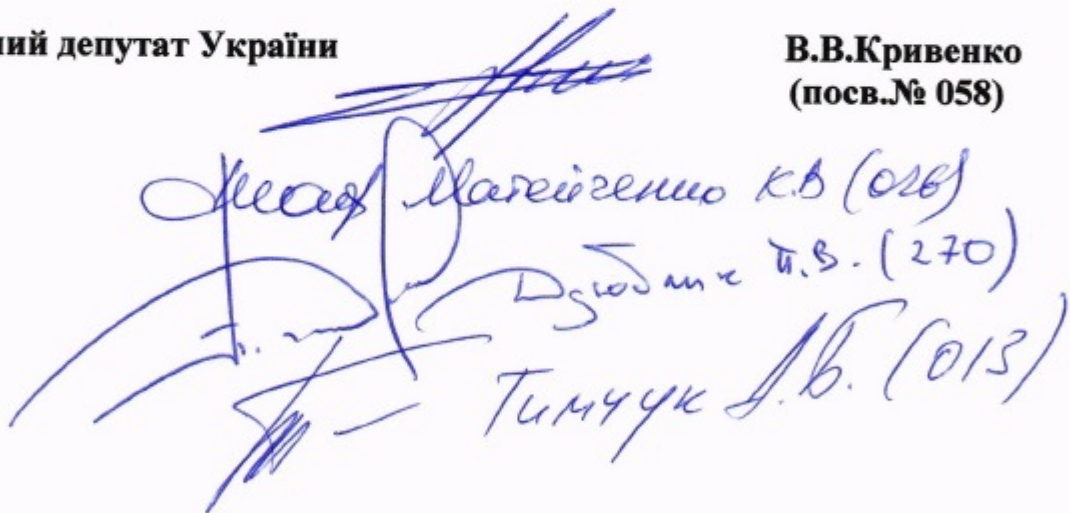 ний депутат України В.В.Кривенко
(посв.№ 058)
Матейченко К.В (026)
Дзюблик П.В. (270)
Тимчук Д.Б. (013)